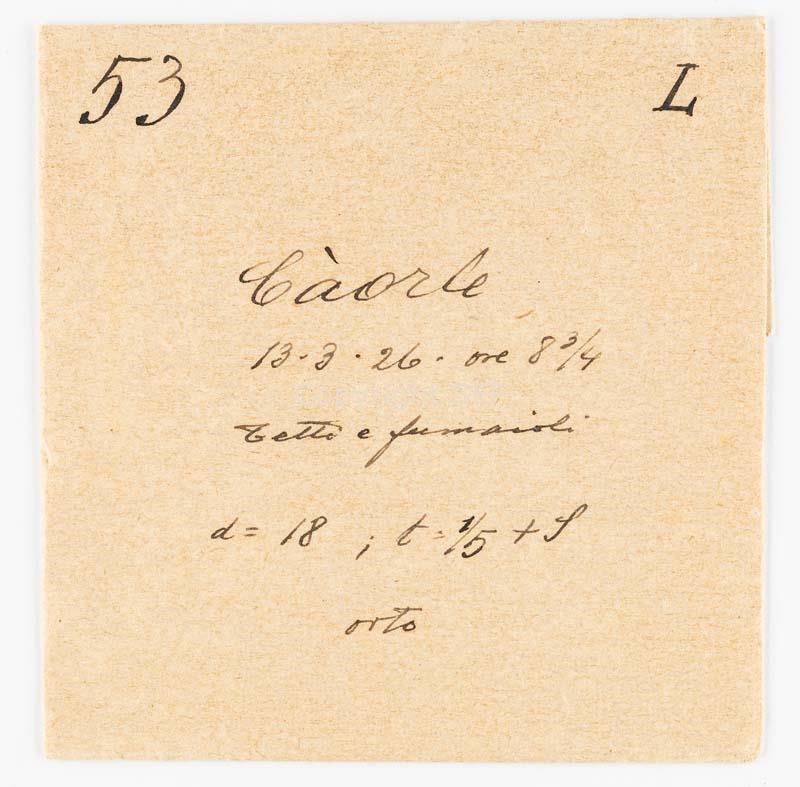 53 L
Càorle
13·3·26· ore 8 3/4
Tetti e fumaioli
d= 18 ; t= 1/5 + S
orto